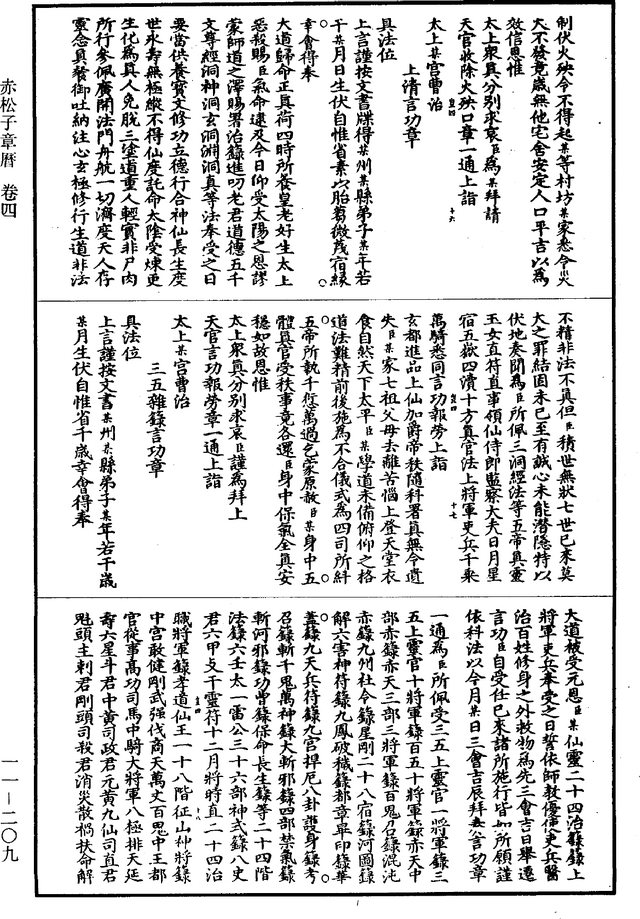 赤松子章曆 卷四
一一—二〇九
制伏火殃令不得起某等村坊某家悉令火
大不發竟歲無他宅舍安定人口平吉以為
效信恩惟
太上眾真分別求哀臣為某拜請
天官收除火殃口章一通上詣
太上某宮曹治
上清言功章
具法位
上言謹按文書牒得某州某縣弟子某年若
干某月日生伏自惟省素以胎葛微茂宿緣
幸會得奉
大道歸命正真荷四時所養皇老好生太上
惡殺賜臣氣命逮及今日仰受太陽之恩謬
蒙師道之澤賜署治籙進叨老君道德五千
文尊經洞神洞玄洞淵洞真等法奉受之日
要當供養寶文修功立德行合神仙長生度
世永壽無極縱不得仙度託命太陰受煉更
生化為真人免脫三塗道重人輕實非尸肉
所行參佩廣開法門舟航一切濟度天人存
靈念真餐御吐納注心玄極修行生道非法
不精非法不真但臣積世無狀七世已來莫
大之罪結固未已至有誠心未能潛隱特以
伏地奏聞為臣所佩三洞經法等五帝真靈
玉女直符直事領仙侍郎監察大夫日月星
宿五嶽四瀆十方真官法上將軍吏兵千乘
萬騎悉同言功報勞上詣
玄都進品上仙加爵帝秩隨科署真無令遺
失臣某家七祖父母去離苦惱上登天堂衣
食自然天下太平臣某學道未備俯仰之格
道法難精前後施為不合儀式為四司所糾
五帝所執千愆萬過乞蒙原赦臣某身中五
體真官受秩事竟各還臣身中保氣全真安
穩如故恩惟
太上眾真分別求哀臣謹為拜上
天官言功報勞章一通上詣
太上某宮曹治
三五雜籙言功章
具法位
上言謹按文書某州某縣弟子某年若干歲
某月生伏自惟省千歲幸會得奉
大道被受元恩臣某仙靈二十四治籙籙上
將軍吏兵奉受之日誓依師教優使吏兵醫
治百姓修身之外救物為先三會吉日舉遷
言功臣自受任已來諸所施行皆如所願謹
依科法以今月某日三會吉辰拜奏言功章
一通為臣所佩受三五上靈官一將軍籙三
五上靈官十將軍籙百五十將軍籙赤天中
部赤籙赤天三部三將軍籙百鬼召籙混沌
赤籙九州社令籙星剛二十八宿籙河圖籙
解六害神符籙九鳳破穢籙都章畢印籙華
蓋籙九天兵符籙九宮捍厄八卦護身籙考
召籙斬千鬼萬神籙大斬邪籙四部禁氣籙
斬河邪籙功曹籙保命長生籙等二十四階
法籙六壬太一雷公三十六部神式籙八史
君六甲支干靈符十二月將時直二十四治
職將軍籙孝道仙王一十八階征山神將籙
中宮敢健剛武強伐商天萬丈百鬼中王都
官從事高功司馬中騎大將軍八極排天延
壽六星斗君中黃司政君元黃九仙司直君
魁頭主剌君剛頭司殺君消災散禍扶命解